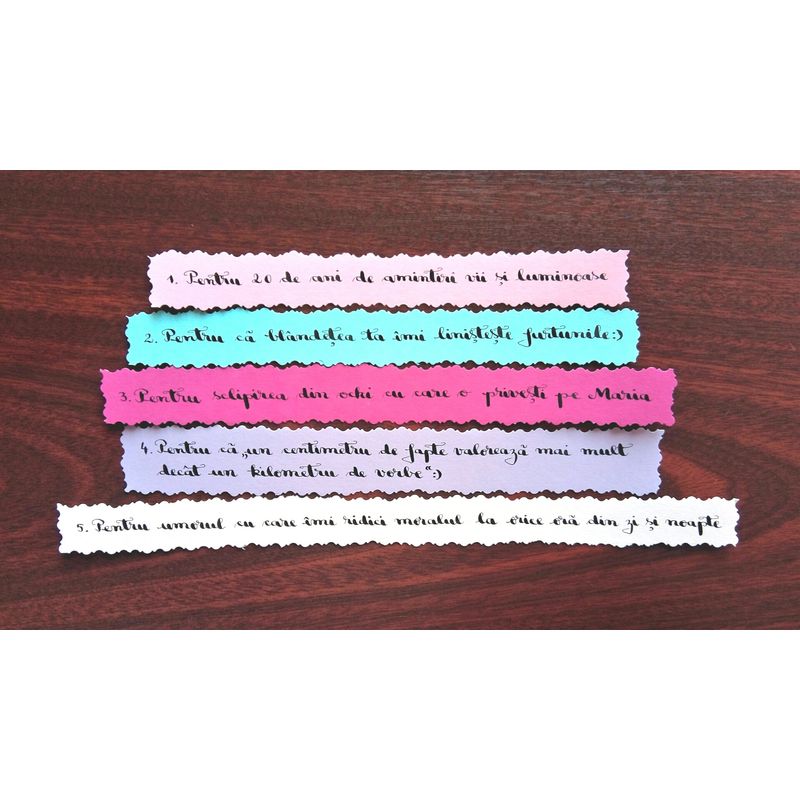 1. Pentru 20 de ani de amintiri vii și luminoase
2. Pentru că blândețea ta îmi liniștește furtunile:)
3. Pentru sclipirea din ochi cu care o privești pe Maria
4. Pentru că „un centimetru de fapte valorează mai mult
decât un kilometru de vorbe“:)
5. Pentru umorul cu care îmi ridici moralul la orice oră din zi și noapte